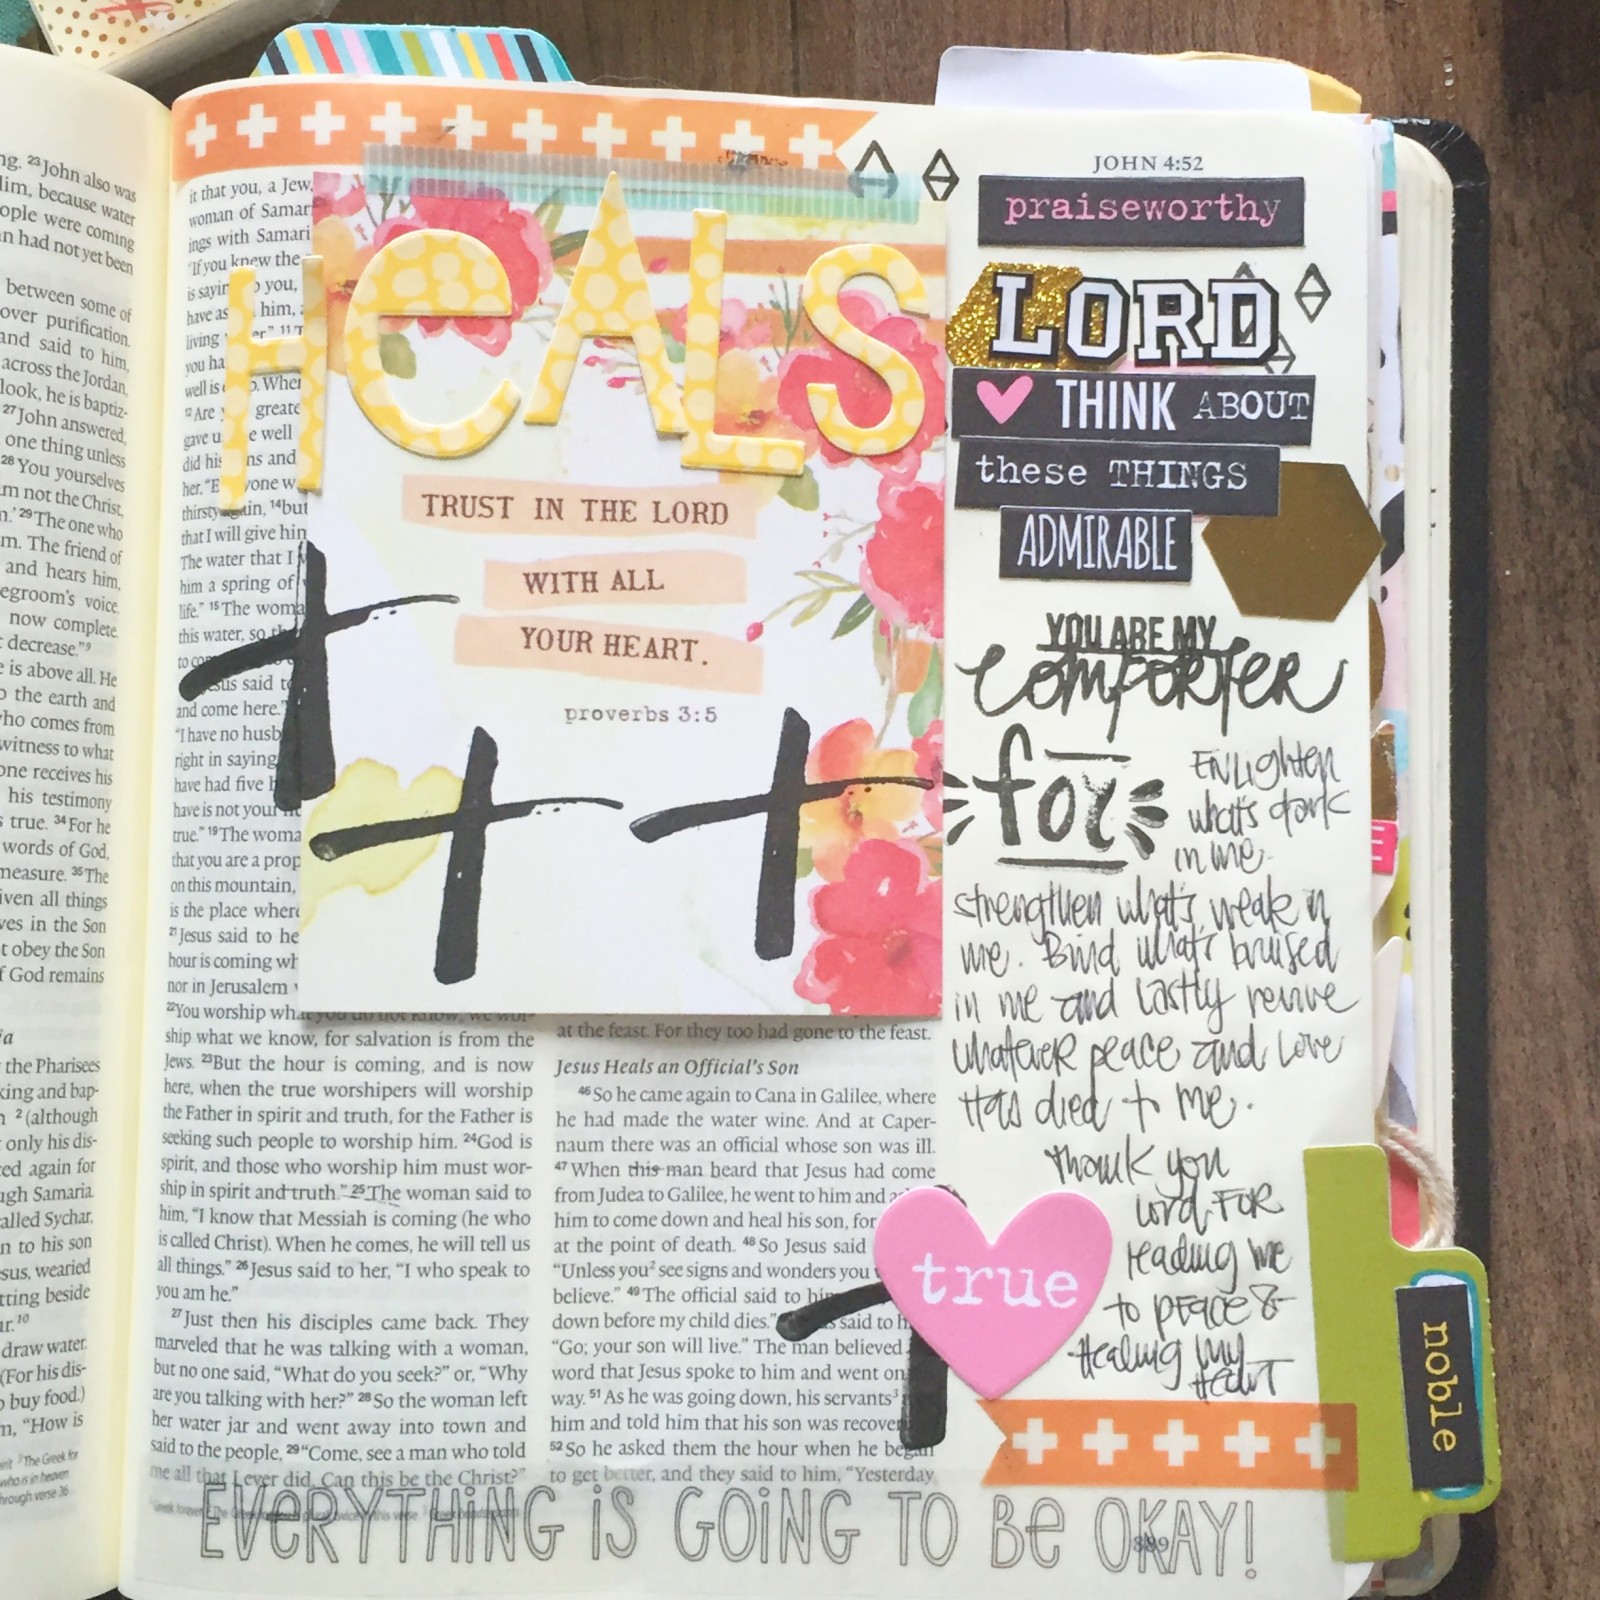 ng. 23John also was
lim, because water
ople were coming
an had not yet been
between some of
over purification.
and said to him,
across the Jordan,
look, he is baptiz-
27John answered,
one thing unless
28You yourselves
m not the Christ,
m.' 29The one who
m. The friend of
and hears him,
egroom's voice.
now complete.
t decrease."9
e is above all. He
o the earth and
who comes from
witness to what
one receives his
his testimony
s true. 34For he
words of God,
measure. 35The
iven all things
ves in the Son
t obey the Son
f God remains
the Pharisees
king and bap-
2(although
only his dis-
ed again for
ugh Samaria.
called Sychar,
n to his son
esus, wearied
tting beside
ur.10
draw water.
(For his dis-
o buy food.)
m, "How is
The Greek for
who is in heaven
through verse 36
it that you, a Jew,
woman of Samar
ings with Samari
"If you knew the
HeALS
TRUST IN THE LORD
WITH ALL
YOUR HEART.
proverbs 3:5
him a spring of
life." 15The woma
this water, so
and come here."
"I have no husb
right in saying,
have had five h
have is not your
true." 19The woma
that you are a prop
on this mountain,
is the place where
21Jesus said to he
hour is coming wh
nor in Jerusalem
22You worship what you do not know; we wor-
ship what we know, for salvation is from the
Jews. 23But the hour is coming, and is now
here, when the true worshipers will worship
the Father in spirit and truth, for the Father is
seeking such people to worship him. 24God is
spirit, and those who worship him must wor-
ship in spirit and truth." 25The woman said to
him, "I know that Messiah is coming (he who
is called Christ). When he comes, he will tell us
all things." 26Jesus said to her, "I who speak to
you am he."
27Just then his disciples came back. They
marveled that he was talking with a woman,
but no one said, "What do you seek?" or, "Why
are you talking with her?" 28So the woman left
her water jar and went away into town and
said to the people, 29"Come, see a man who told
me all that I ever did. Can this be the Christ?"
at the feast. For they too had gone to the feast.
Jesus Heals an Official's Son
46So he came again to Cana in Galilee, where
he had made the water wine. And at Caper-
naum there was an official whose son was ill.
47When this man heard that Jesus had come
from Judea to Galilee, he went to him and
him to come down and heal his son, for
at the point of death. 48So Jesus said
"Unless you2 see signs and wonders you
believe." 49The official said to him
down before my child dies." said to
"Go; your son will live." The man believed
word that Jesus spoke to him and went on
way. 51As he was going down, his servants3
him and told him that his son was recover
52So he asked them the hour when he began
to get better, and they said to him, "Yesterday
EVERYTHiNG iS GOiNG TO Be OKAY!
889
JOHN 4:52
praiseworthy
LORD
THINK ABOUT
these THINGS
ADMIRABLE
YOU ARE MY
COMFORTER
for
ENLighten
what's dark
in me.
strengthen what's weak in
me. Bind what's bruised
in me and Lastly revive
whatever peace and Love
Has died in me.
Thank you
Lord FOR
leading me
to peace &
Healing my
Heart
true
noble